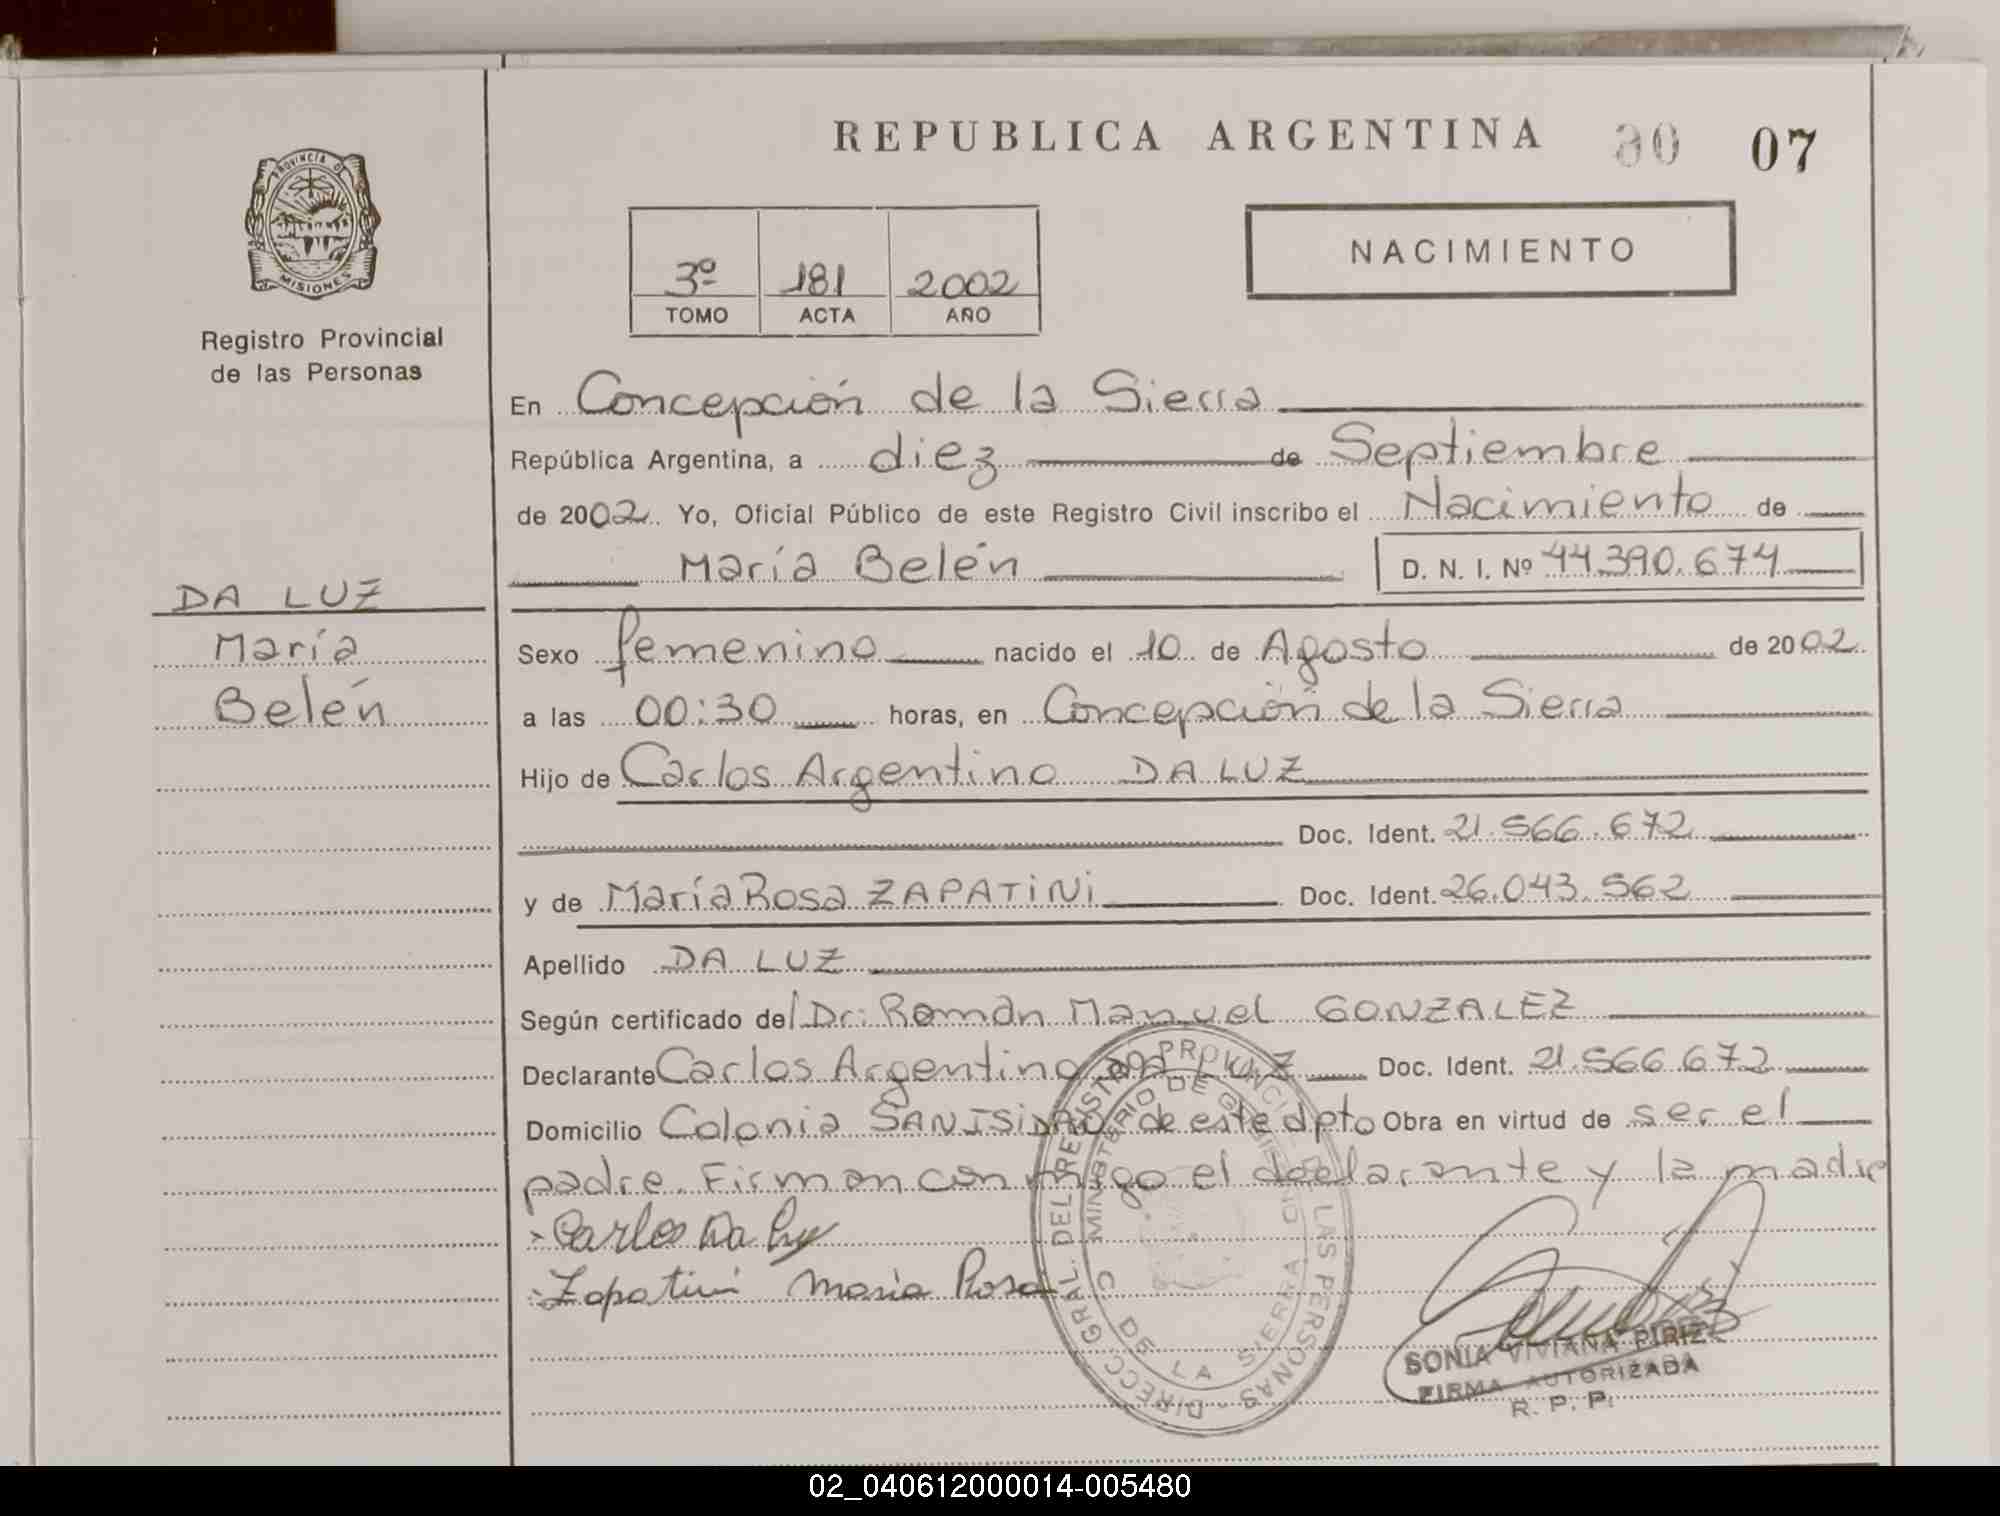 REPUBLICA ARGENTINA 30 07
PROVINCIA D
MISIONES
Registro Provincial
de las Personas
3º 181 2002
TOMO ACTA AÑO
NACIMIENTO
En Concepción de la Sierra
República Argentina, a diez de Septiembre
de 2002. Yo, Oficial Público de este Registro Civil inscribo el Nacimiento de
María Belén D. N. I. Nº 44.390.674
DA LUZ
María
Belén
Sexo femenino nacido el 10 de Agosto de 2002
a las 00:30 horas, en Concepción de la Sierra
Hijo de Carlos Argentino DA LUZ
Doc. Ident. 21.566.672
y de María Rosa ZAPATINI Doc. Ident. 26.043.562
Apellido DA LUZ
Según certificado del Dr: Román Manuel GONZALEZ
Declarante Carlos Argentino DA LUZ Doc. Ident. 21.566.672
Domicilio Colonia SAN ISIDRO de este dpto Obra en virtud de ser el
padre. Firman conmigo el declarante y la madre
Carlos Da Luz
Zapatini Maria Rosa
DIRECC. GRAL. DEL REGISTRO PROVINCIAL DE LAS PERSONAS
MINISTERIO DE GOBIERNO
C DE LA SIERRA
SONIA VIVIANA PIRIZ
FIRMA AUTORIZADA
R. P. P.
02_040612000014-005480